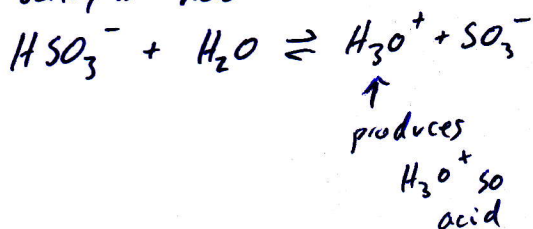 HSO₃⁻ + H₂O ⇌ H₃O⁺ + SO₃⁻
↑
produces
H₃O⁺ so
acid